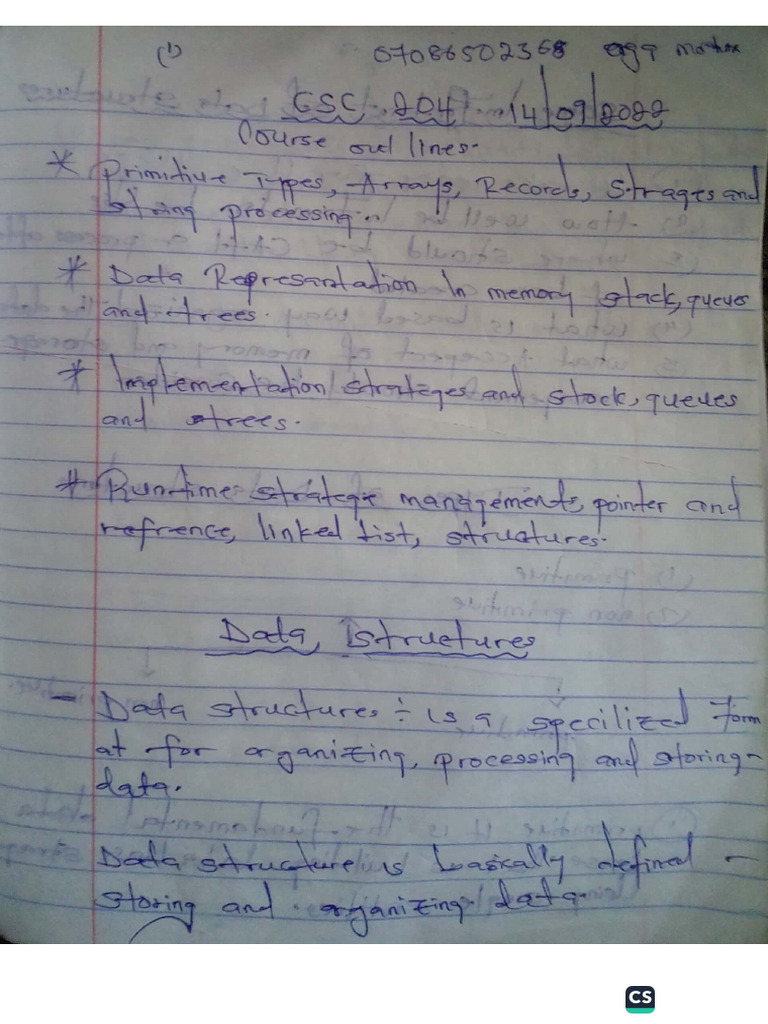 (1) 07086502368 egga
CSC. 204. 14/09/2022
Course out lines.
* Primitive Types, Arrays, Records, Strages and
string processing.
* Data Represantation In memory stack, queues
and trees.
* Implementation strateges and stock, queues
and strees.
* Run-time strategie managements, pointer and
refrence, linked list, structures.
Data structures
- Data structures ÷ is a specilized Form
at for organizing, processing and storing-
data.
- Data structure is basically defined -
storing and organizing data.
CS